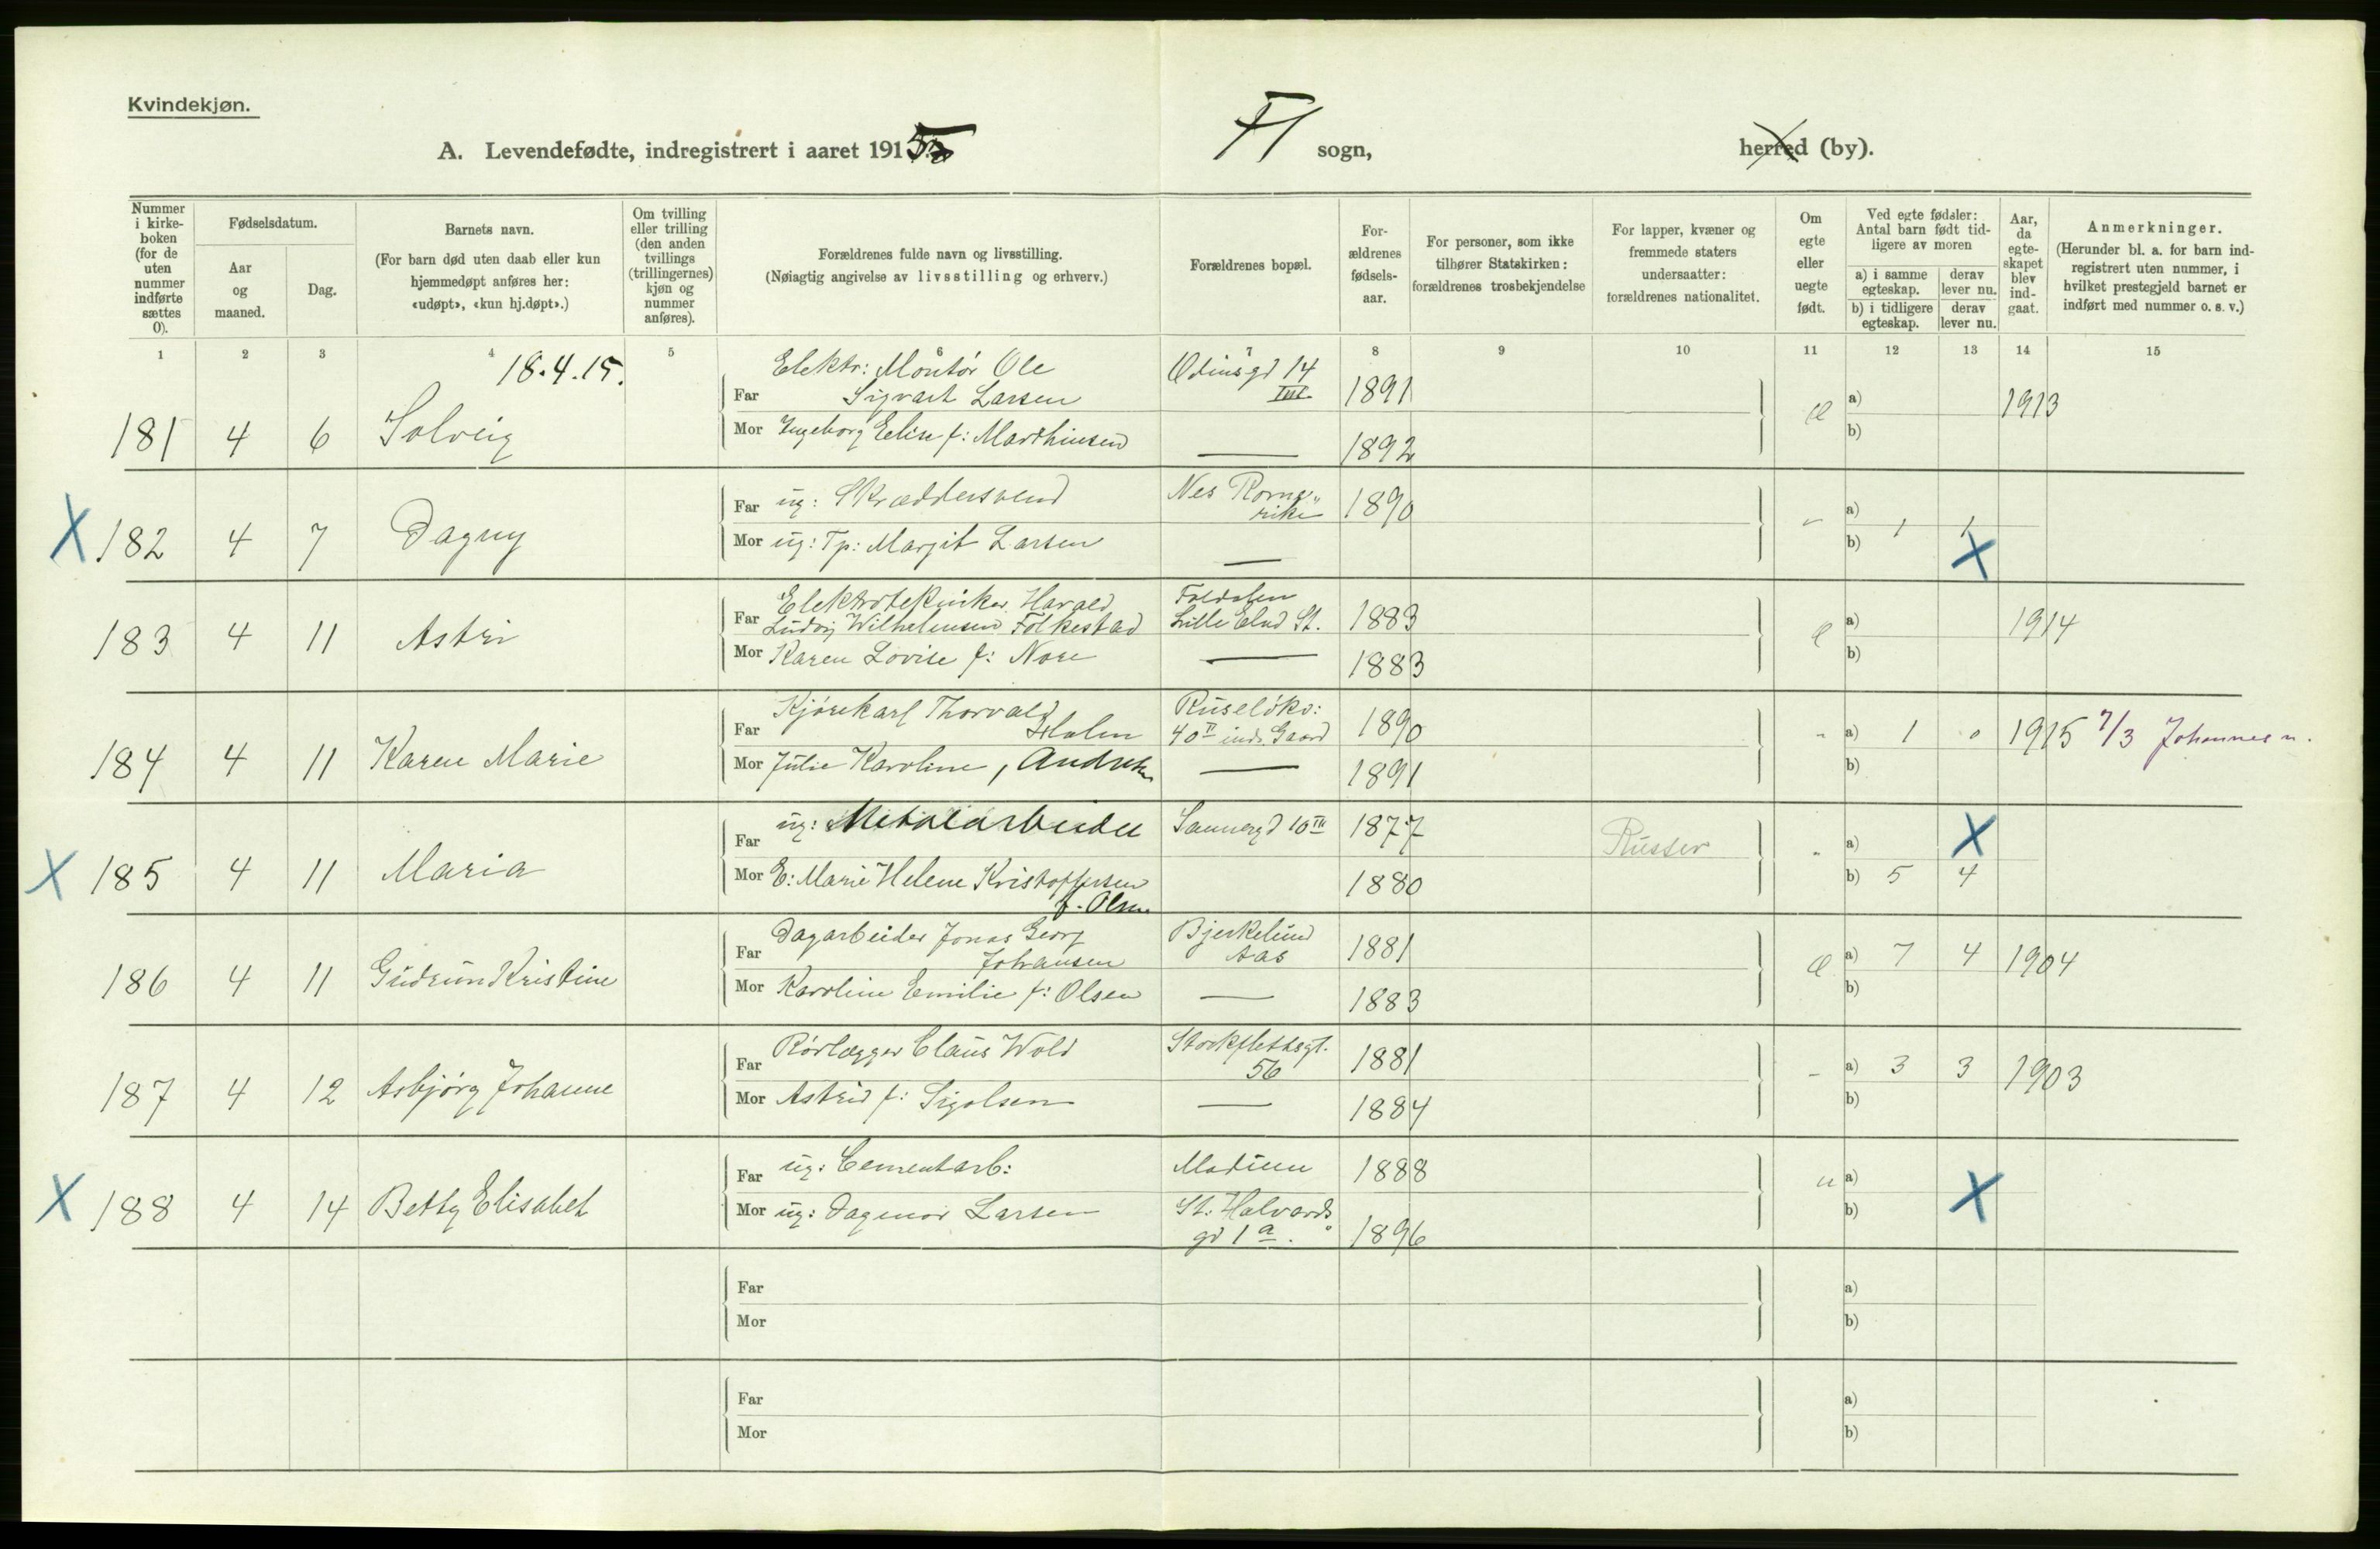 Kvindekjøn.
A. Levendefødte, indregistrert i aaret 1915
Fl sogn,
herred (by).
Nummer i kirke-boken (for de uten nummer indførte sættes 0).
Fødselsdatum.
Aar og maaned.
Dag.
Barnets navn.
(For barn død uten daab eller kun hjemmedøpt anføres her: «udøpt», «kun hj.døpt».)
Om tvilling eller trilling (den anden tvillings (trillingernes) kjøn og nummer anføres).
Forældrenes fulde navn og livsstilling.
(Nøiagtig angivelse av livsstilling og erhverv.)
Forældrenes bopæl.
For-ældrenes fødsels-aar.
For personer, som ikke tilhører Statskirken: forældrenes trosbekjendelse
For lapper, kvæner og fremmede staters undersaatter: forældrenes nationalitet.
Om egte eller uegte født.
Ved egte fødsler: Antal barn født tid-ligere av moren
a) i samme egteskap.
derav lever nu.
b) i tidligere egteskap.
derav lever nu.
Aar, da egte-skapet blev ind-gaat.
Anmerkninger.
(Herunder bl. a. for barn ind-registrert uten nummer, i hvilket prestegjeld barnet er indført med nummer o. s. v.)
1 2 3 4 5 6 7 8 9 10 11 12 13 14 15
18.4.15.
181 4 6 Solveig
Far Elektr: Montør Ole Sigvart Larsen
Odinsgd 14 III 1891
Mor Ingeborg Elise f: Marthinsen
— 1892
æ a) b) 1913
X 182 4 7 Dagny
Far ug: Skræddersvend
Nes Rome-rike 1890
Mor ug: Tp: Margit Larsen
—
a) b) 1 1 X
183 4 11 Astri
Far Elektrotekniker Harald Ludvig Wilhelmsen Folkestad
Foldalen Lille Elvd St. 1883
Mor Karen Lovise f: Nore
— 1883
a) b) 1914
184 4 11 Karen Marie
Far Kjørekarl Thorvald Holm
Ruseløkv: 40 II inds. Gaard 1890
Mor Julie Karoline, Andresen
— 1891
" a) 1 0 b) 1915 7/3 Johannes m.
X 185 4 11 Maria
Far ug: Metalarbeider
Sannergd 10 III 1877
Russer
Mor E: Marie Helene Kristoffersen f. Olsen
1880
a) X b) 5 4
186 4 11 Gudrun Kristine
Far Dagarbeider Jonas Georg Johansen
Bjerkelund Aas 1881
Mor Karoline Emilie f: Olsen
— 1883
æ a) 7 4 b) 1904
187 4 12 Asbjørg Johanne
Far Rørlægger Claus Wold
Stockflethsgt. 56 1881
Mor Astrid f: Sigolsen
— 1884
– a) 3 3 b) 1903
X 188 4 14 Betty Elisabet
Far ug: Cementarb:
Modum 1888
Mor ug: Dagmar Larsen
St. Halvards gd 1 a. 1896
u a) b) X
Far
Mor
a)
b)
Far
Mor
a)
b)